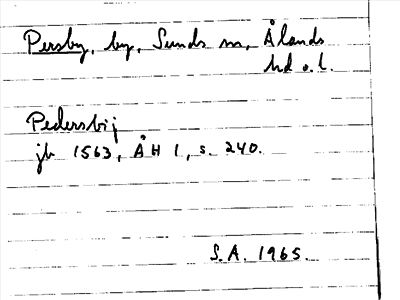 Persby, by, Sunds sn, Ålands
hd o. l.
Pedersbij
jb 1563, ÅH 1, s. 240.
S.A. 1965.